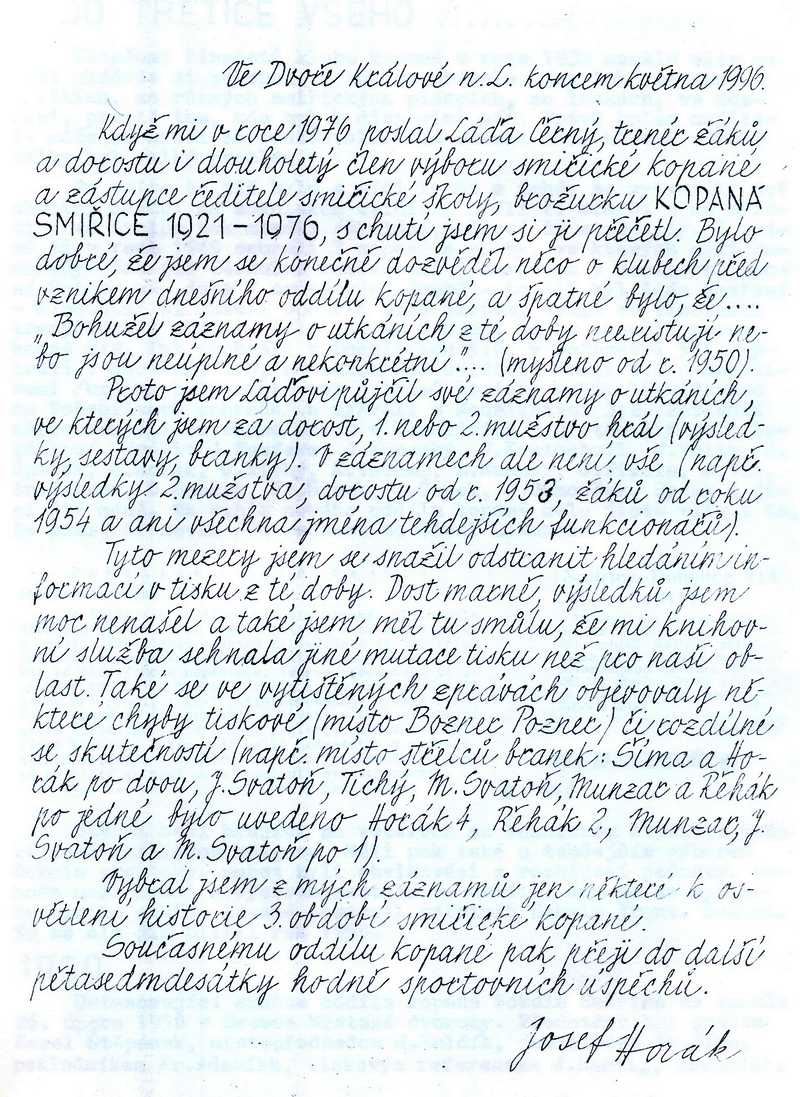 Ve Dvoře Králové n.L. koncem května 1996.
Když mi v roce 1976 poslal Láďa Černý, trenér žáků
a dorostu i dlouholetý člen výboru smiřické kopané
a zástupce ředitele smiřické školy, brožurku KOPANÁ
SMIŘICE 1921-1976, s chutí jsem si ji přečetl. Bylo
dobré, že jsem se konečně dozvěděl něco o klubech před
vznikem dnešního oddílu kopané, a špatné bylo, že....
„Bohužel záznamy o utkáních z té doby neexistují ne-
bo jsou neúplné a nekonkrétní".... (myšleno od r. 1950).
Proto jsem Láďovi půjčil své záznamy o utkáních,
ve kterých jsem za dorost, 1. nebo 2. mužstvo hrál (výsled-
ky, sestavy, branky). V záznamech ale není vše (např.
výsledky 2. mužstva, dorostu od r. 1953, žáků od roku
1954 a ani všechna jména tehdejších funkcionářů).
Tyto mezery jsem se snažil odstranit hledáním in-
formací v tisku z té doby. Dost marně, výsledků jsem
moc nenašel a také jsem měl tu smůlu, že mi knihov-
ní služba sehnala jiné mutace tisku než pro naši ob-
last. Také se ve vytištěných zprávách objevovaly ně-
které chyby tiskové (místo Bozner Pozner) či rozdílné
se skutečností (např. místo střelců branek: Šíma a Ho-
rák po dvou, J. Svatoň, Tichý, M. Svatoň, Munzar a Řehák
po jedné bylo uvedeno Horák 4, Řehák 2, Munzar, J.
Svatoň a M. Svatoň po 1).
Vybral jsem z mých záznamů jen některé k os-
větlení historie 3. období smiřické kopané.
Současnému oddílu kopané pak přeji do další
pětasedmdesátky hodně sportovních úspěchů.
Josef Horák